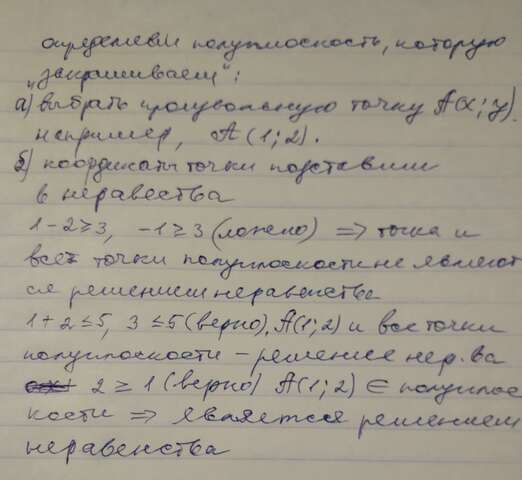 определяем полуплоскость, которую
„закрашиваем“:
а) выбрать произвольную точку A(x; y).
например, A(1; 2).
б) координаты точки подставим
в неравества
1-2≥3, -1≥3 (ложно) => точка и
все точки полуплоскости не являют
ся решением неравенства
1+2≤5, 3≤5 (верно), A(1;2) и все точки
полуплоскости – решение нер.ва
2≥1 (верно) A(1;2) ∈ полуплос
кости => является решением
неравенства